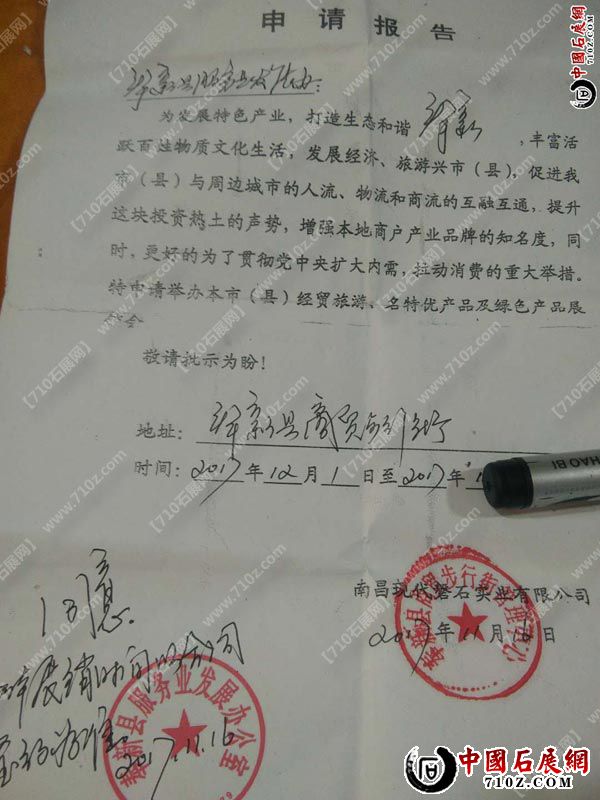 申请报告
为发展特色产业，打造生态和谐 ，丰富活
跃百姓物质文化生活，发展经济、旅游兴市（县），促进我
市（县）与周边城市的人流、物流和商流的互融互通，提升
这块投资热土的声势，增强本地商户产业品牌的知名度，同
时，更好的为了贯彻党中央扩大内需，拉动消费的重大举措。
特申请举办本市（县）经贸旅游、名特优产品及绿色产品展
敬请批示为盼！
地址：
时间：2017年12月1日至2017年1
南昌现代磐石实业有限公司
2017年11月16日
同意
服务业发展办公室
2017.11.16
中國石展網
WWW.710Z.COM
【710石展网】
www.710z.com
HAOBI
中國石展網
710Z.COM